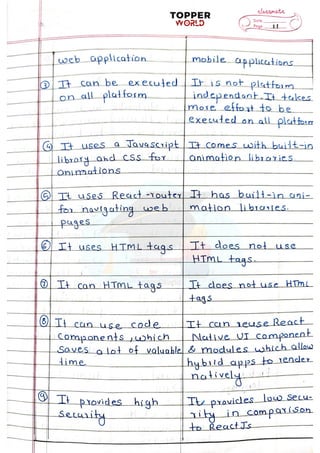 TOPPER
WORLD
classmate
Date
Page 11
web application
mobile applications
③ It can be executed
on all platform
It is not platform
independant. It takes
more effort to be
executed on all platform
④ It uses a Javascript
library and CSS for
animations
It comes with built-in
animation libraries
⑤ It uses React-router
for navigating web
pages
It has built-in ani-
mation libraries.
⑥ It uses HTML tags
It does not use
HTML tags.
⑦ It can HTML tags
It does not use HTML
tags
⑧ It can use code
components, which
saves a lot of valuable
time
It can reuse React
Native UI component
& modules which allow
hybrid apps to render
natively
⑨ It provides high
security
It provides low secu-
rity in comparison
to ReactJs